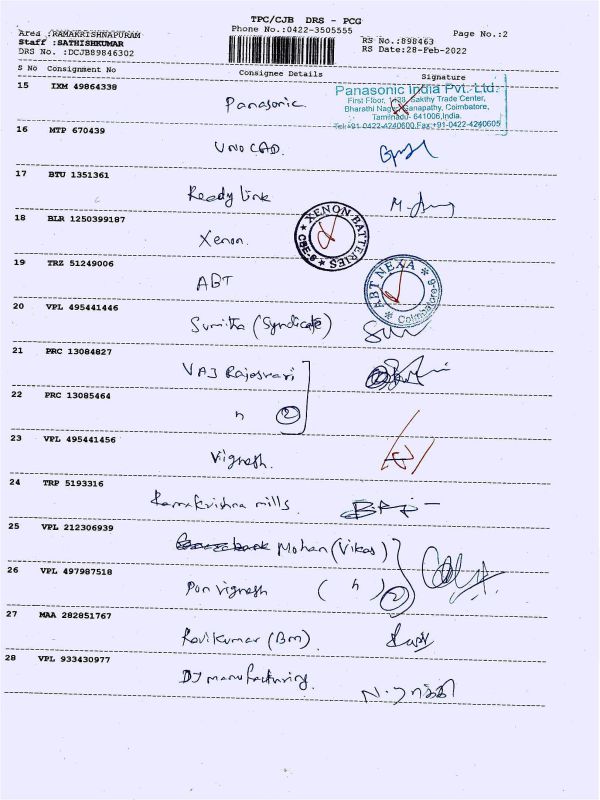 TPC/CJB DRS - PCG
Phone No.:0422-3505555
Page No.:2
Area :RAMAKRISHNAPURAM
Staff :SATHISHKUMAR
DRS No. :DCJB89846302
RS No.:898463
RS Date:28-Feb-2022
S No Consignment No Consignee Details Signature
15 IXM 49864338 Panasonic
Panasonic India Pvt. Ltd.
First Floor, 1/28, Sakthy Trade Center,
Bharathi Nagar, Ganapathy, Coimbatore,
Tamilnadu- 641006,India.
Tel:+91-0422-4240600,Fax:+91-0422-4240605
16 MTP 670439 UNO CAD.
17 BTU 1351361 Ready Link
18 BLR 1250399187 Xenon.
XENON BATTERIES CBE-6
19 TRZ 51249006 ABT
ABT NEXA Coimbatore-6
20 VPL 495441446 Sumitha (Syndicate)
21 PRC 13084827 VAJ Rajeswari
22 PRC 13085464 " 2
23 VPL 495441456 Vignesh.
24 TRP 5193316 Ramakrishna mills.
25 VPL 212306939 Mohan (Vikas)
26 VPL 497987518 Pon vignesh ( " ) 2
27 MAA 282851767 Ravikumar (Bm).
28 VPL 933430977 DJ manufacturing.